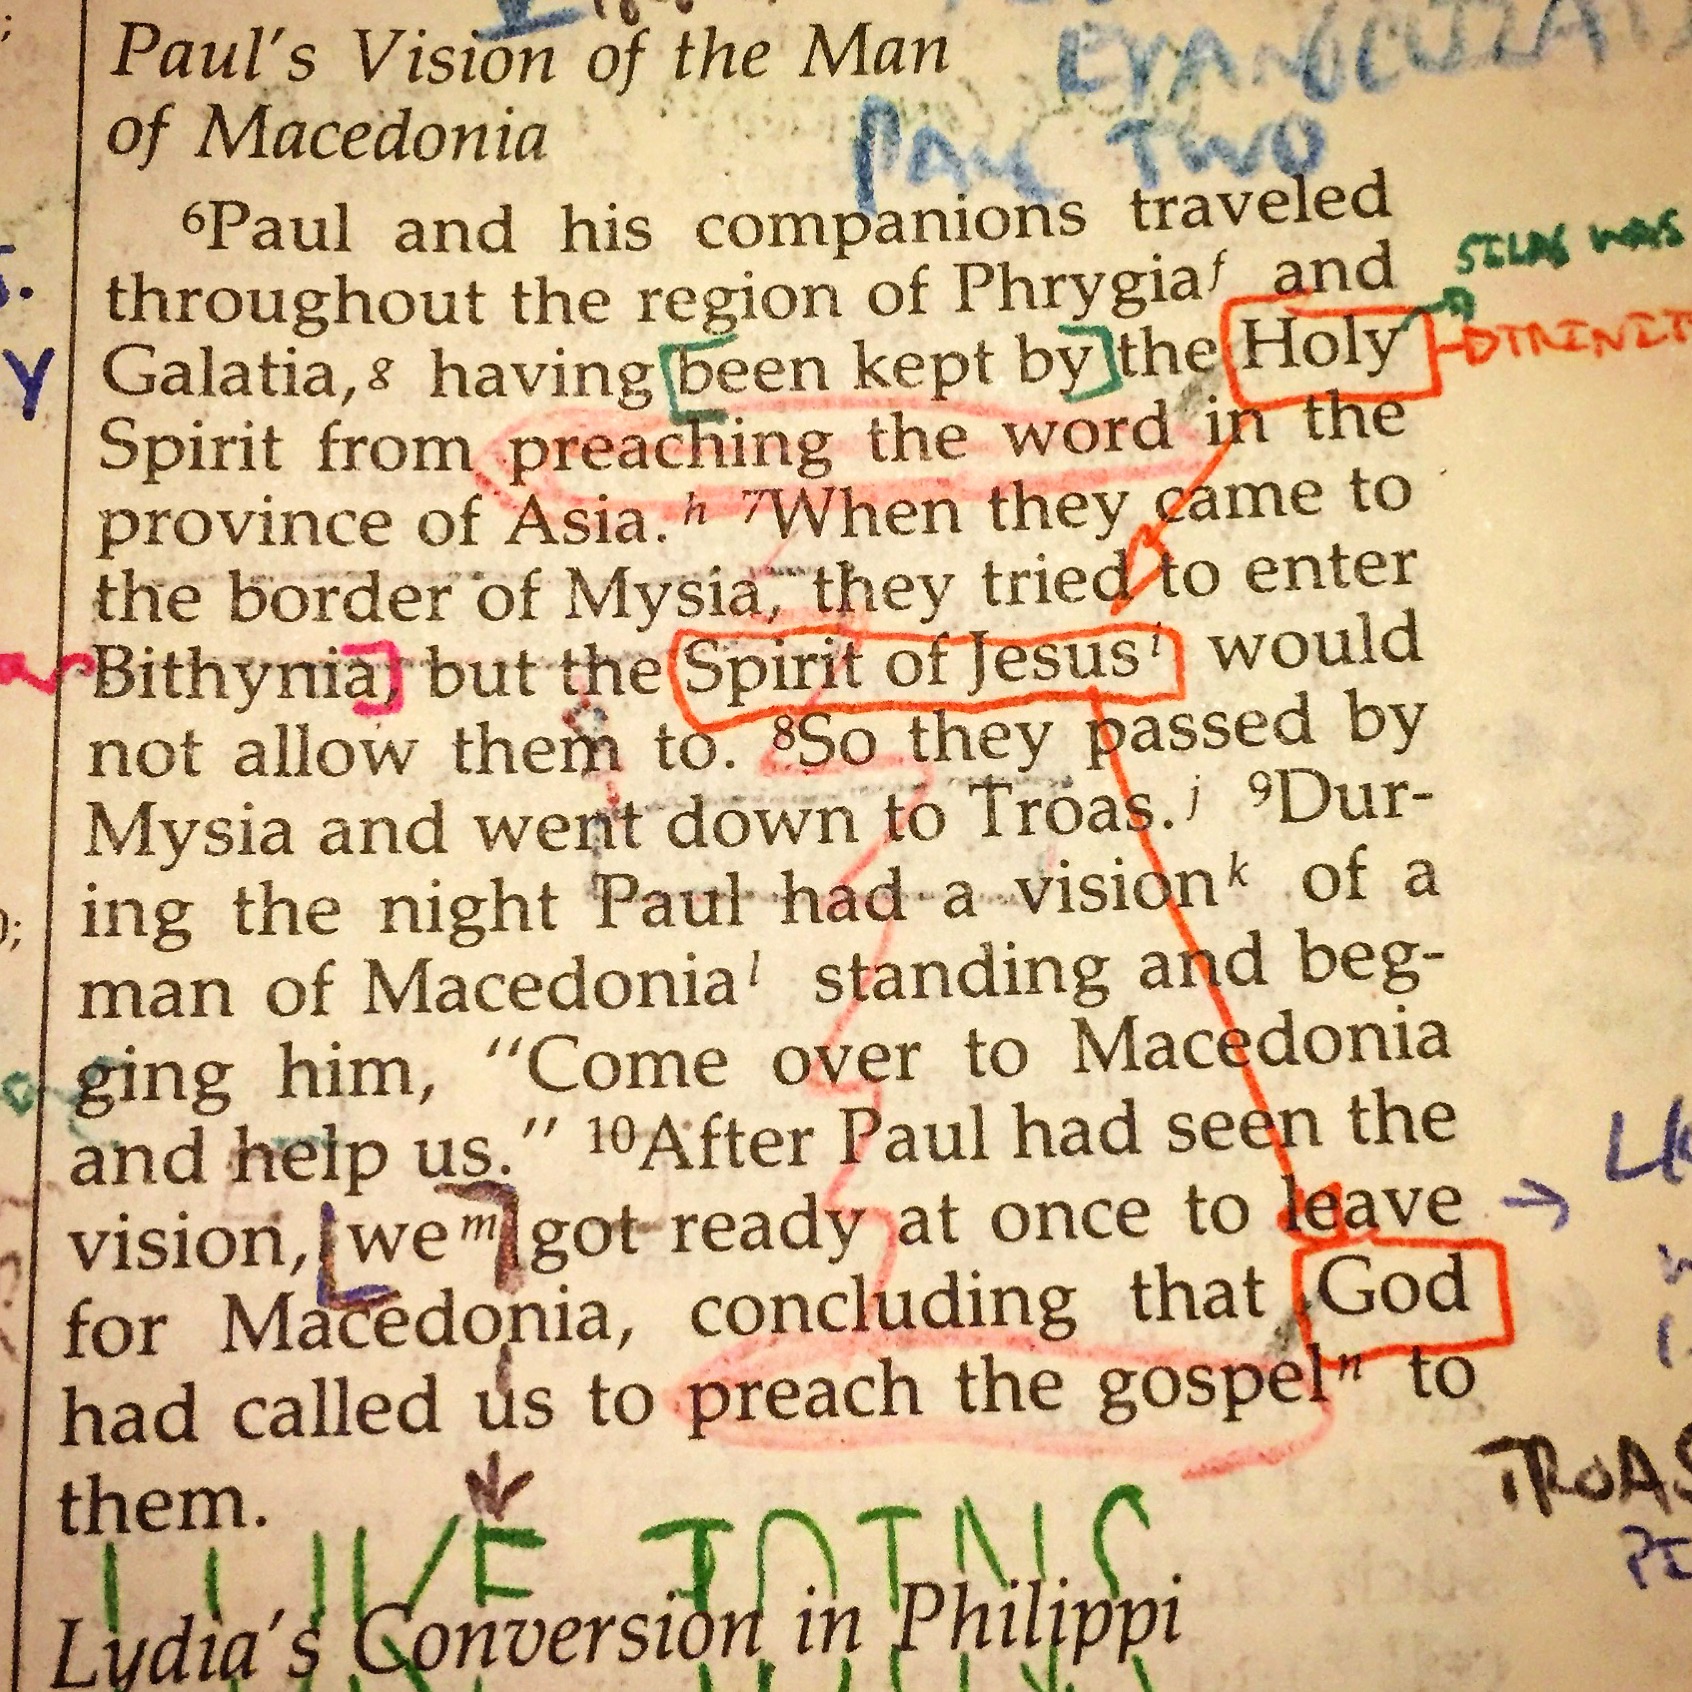 Paul's Vision of the Man
of Macedonia
PART TWO
⁶Paul and his companions traveled
throughout the region of Phrygiaᶠ and
SILAS WAS
Galatia,ᵍ having been kept by the Holy
Spirit from preaching the word in the
province of Asia.ʰ ⁷When they came to
the border of Mysia, they tried to enter
Bithynia, but the Spirit of Jesusⁱ would
not allow them to. ⁸So they passed by
Mysia and went down to Troas.ʲ ⁹Dur-
ing the night Paul had a visionᵏ of a
man of Macedoniaˡ standing and beg-
ging him, "Come over to Macedonia
and help us." ¹⁰After Paul had seen the
vision, weᵐ got ready at once to leave
for Macedonia, concluding that God
had called us to preach the gospelⁿ to
TROAS
them.
LUKE JOINS
Lydia's Conversion in Philippi